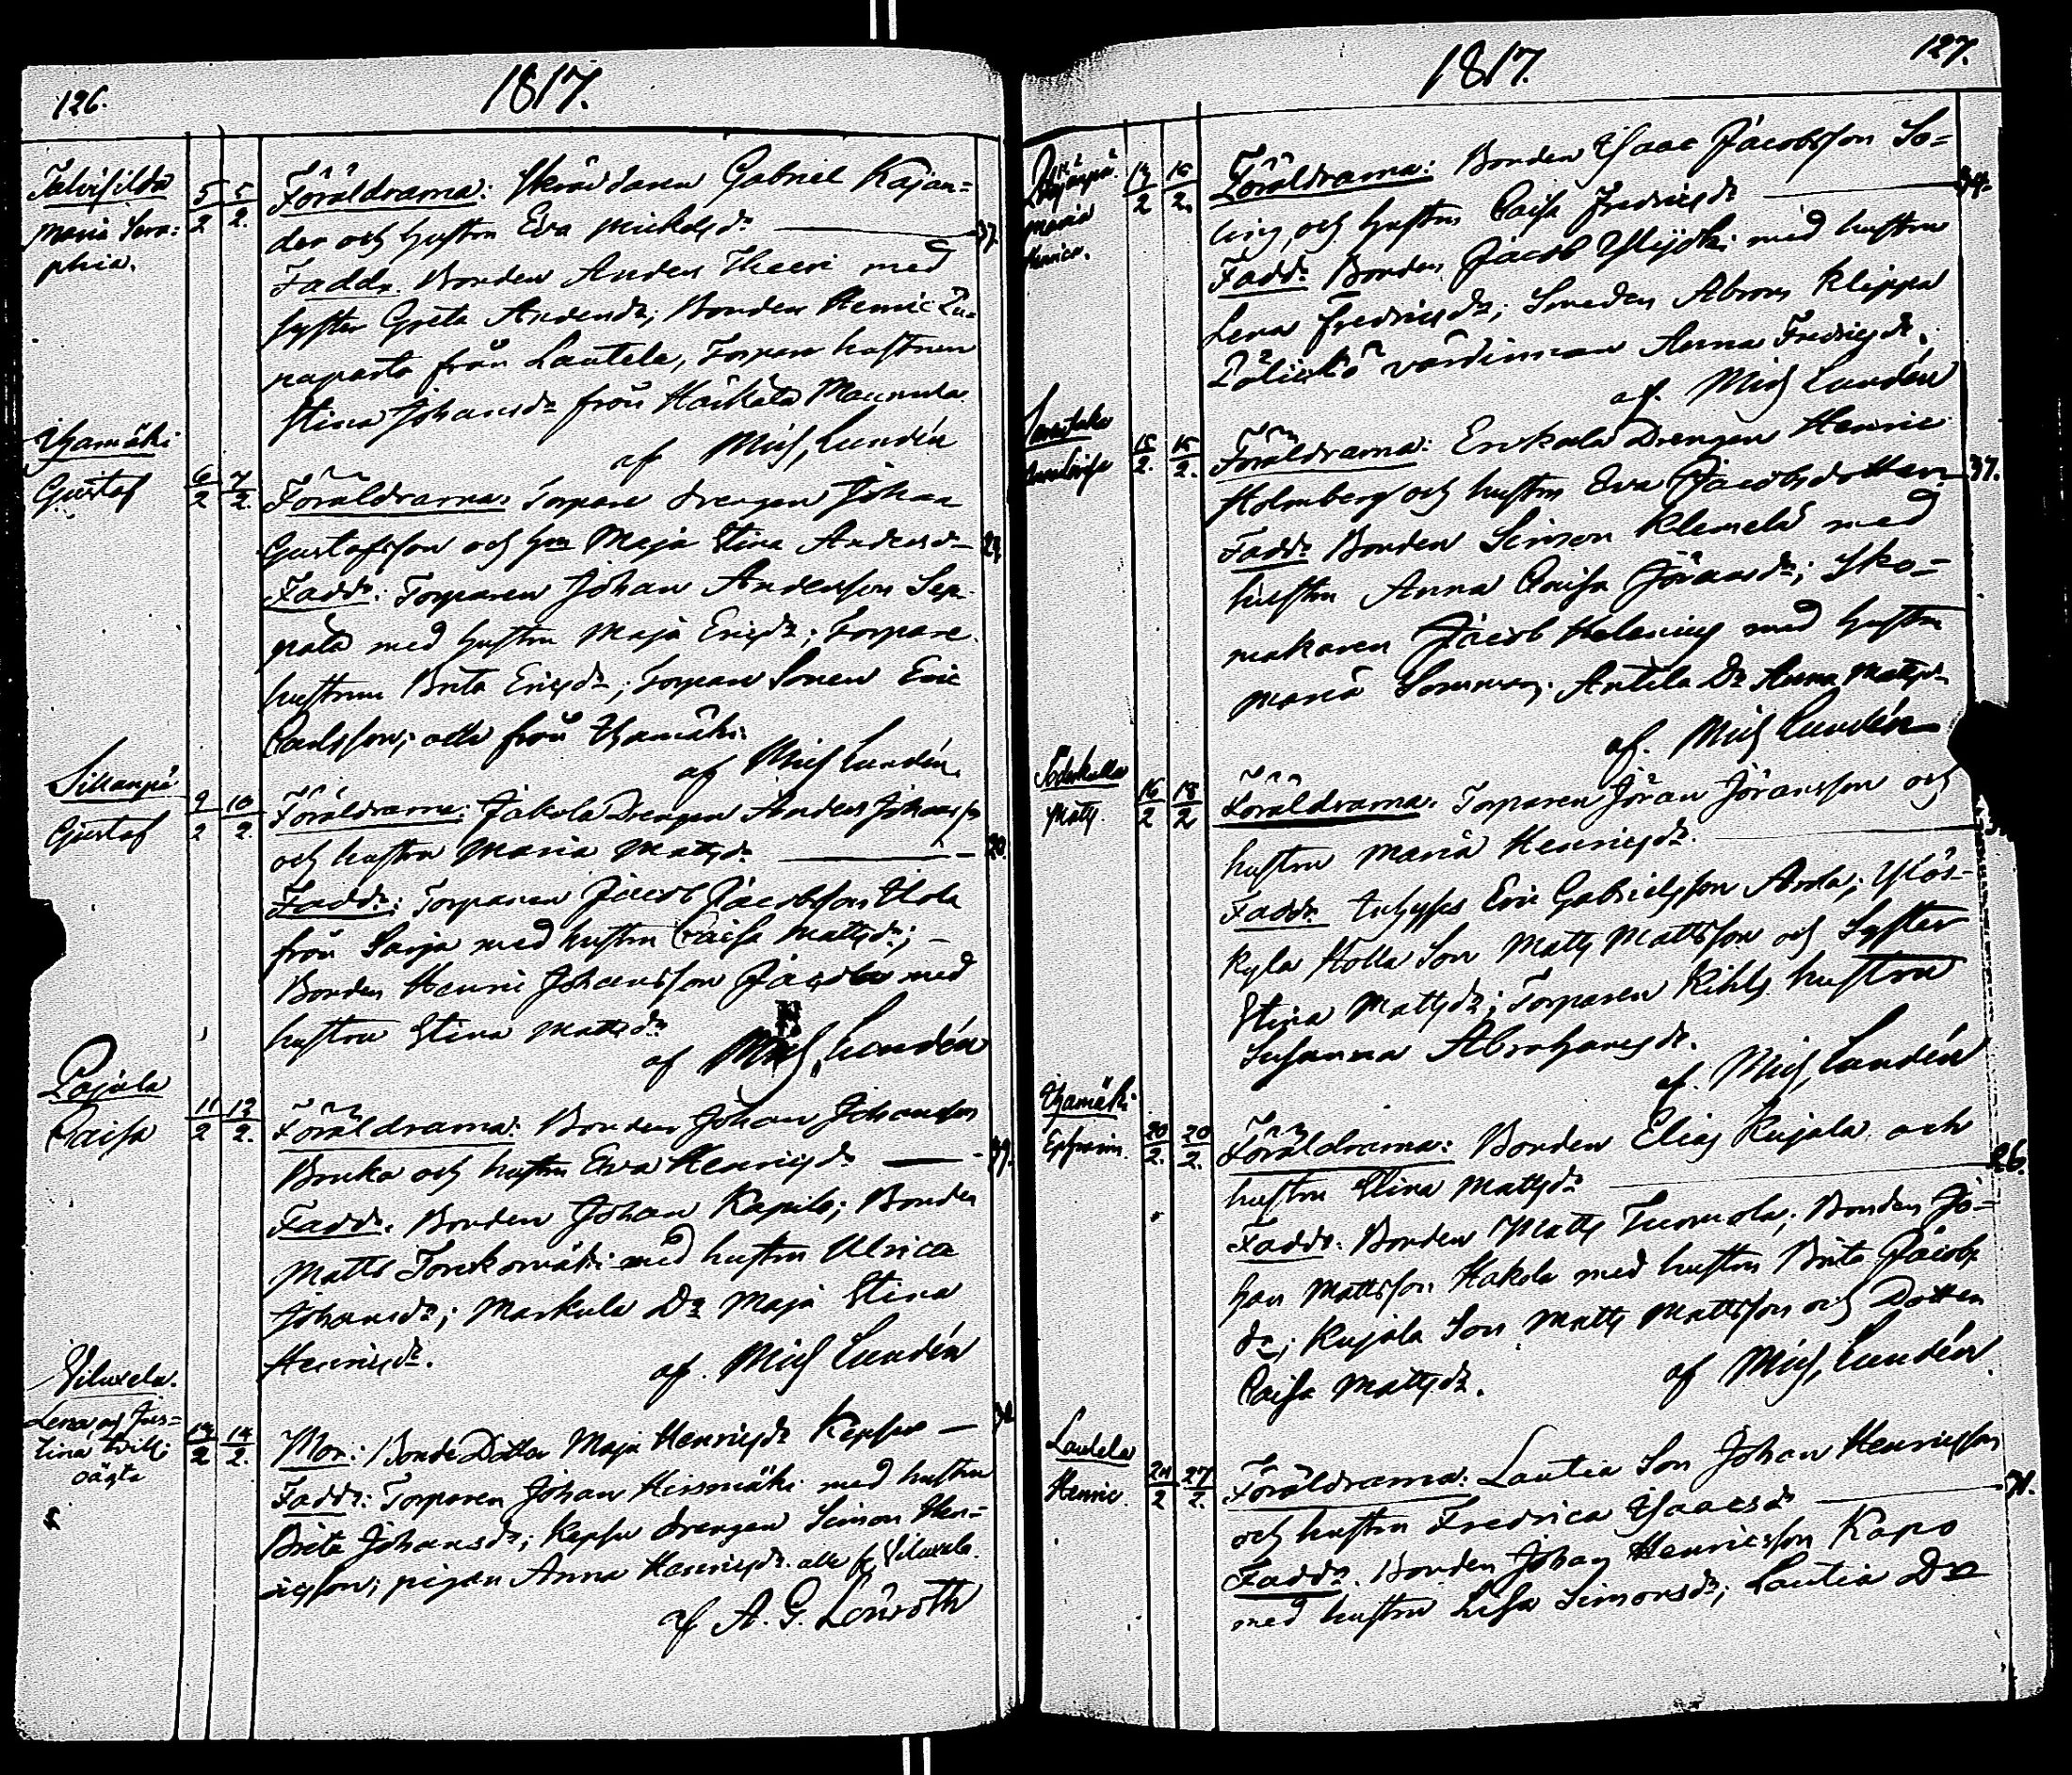 126.
1817.
Talvisilda
Maria Sera=
phia.
5/2 5/2.
Föräldrarna: Skräddaren Gabriel Kajan=
der och hustru Eva Mickelsdr
37.
Faddr. Bonden Anders Heeri med
syster Greta Andersdr; Bonden Henric
från Lautela, Torpare hustrun
Stina Johansdr från Maunula.
af Mich, Lundén
Ihamäki
Gustaf
6/2 7/2.
Föräldrarna: Torpare drengen Johan
Gustafsson och hru Maja Stina Andersdr
Faddr: Torparen Johan Andersson Sep=
pälä med hustru Maja Ericsdr; Torpare
hustrun Brita Ericsdr; Torpare Sonen Eric
Carlsson; alla från Ihamäki.
af Mich Lundén.
Sillanpä
Gustaf
9/2 10/2.
Föräldrarna: Jakola Drengen Anders Johansson
och hustru Maria Mattsdr
20.
Faddr: Torparen Jacob Jacobsson Ilola
från Sarja med hustru Caisa Mattsdr;
Bonden Henric Johansson med
hustru Stina Mattsdr
af Mich, Lundén
Pajula
Caisa
11/2 12/2.
Föräldrarna: Bonden Johan Johansson
och hustru Eva Henricsdr
39.
Faddr. Bonden Johan Kapila; Bonden
Matts med hustru Ulrica
Johansdr; Markula Dr Maja Stina
Henricsdr.
af. Mich Lundén
Viluxela.
Lena och Jus=
tina
oägta
14/2.
Mor: Bonde Dotter Maja Henricsdr
Faddr: Torparen Johan Hirsimäki med hustru
Brita Johansdr; drengen Simon Hen=
ricsson; pigan Anna Henricsdr. alla fr Viluxela.
af A. G. Lönroth
1817.
127.
Maria
Henrica.
16/2.
Föräldrarna: Bonden Isaac Jacobsson So=
ling, och hustru Caisa Fredricsdr
Faddr: Bonden Jacob med hustru
Lena Fredricsdr; Smeden Abram Kleppa
värdinnan Anna Fredricsdr.
af. Mich Lundén
15/2. 16/2.
Föräldrarna: Erikala Drengen Henric
Holmberg och hustru Eva Jacobsdotter
37.
Faddr Bonden Simon Klemelä med
hustru Anna Caisa Jöransdr; Sko=
makaren Jacob Helenius med hustru
Maria Antila Dr Anna Mattsdr
af. Mich Lundén
Söderkulla
Matts
16/2 18/2
Föräldrarna. Torparen Jöran Jöransson och
hustru Maria Henricsdr.
Faddr Inhyses Eric Gabrielsson; Ylös-
kylä Holla Son Matts Mattsson och Syster
Stina Mattsdr; Torparen Kihls hustru
Susanna Abrahamsdr.
af. Mich, Lundén
Ihamäki
Ephraim.
20/2. 20/2.
Föräldrarna: Bonden Elias Kujala och
hustru Stina Mattsdr
26.
Faddr: Bonden Matts Tuomola; Bonden Jo=
han Mattsson Hakola med hustru Brita Jacobs
dr; Kujala Son Matts Mattsson och Dotter
Caisa Mattsdr.
af Mich, Lundén
Lautela
Henric.
24/2 27/2.
Föräldrarna: Lautia Son Johan Henricsson
och hustru Fredrica Isaacsdr
Faddr. Bonden Johan Henricsson Kapo
med hustru Lisa Simonsdr; Lautia Dr